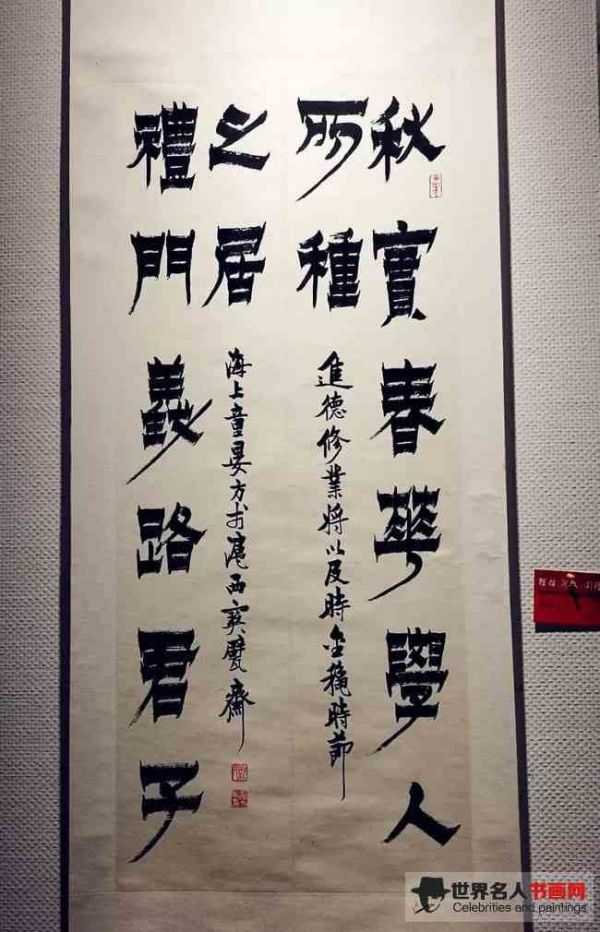 秋實春華學人
所種
進德修業將以及時金穐時節
禮門義路君子
之居
海上童晏方于滬西寶甓齋
世界名人书画网
Celebrities and paintings